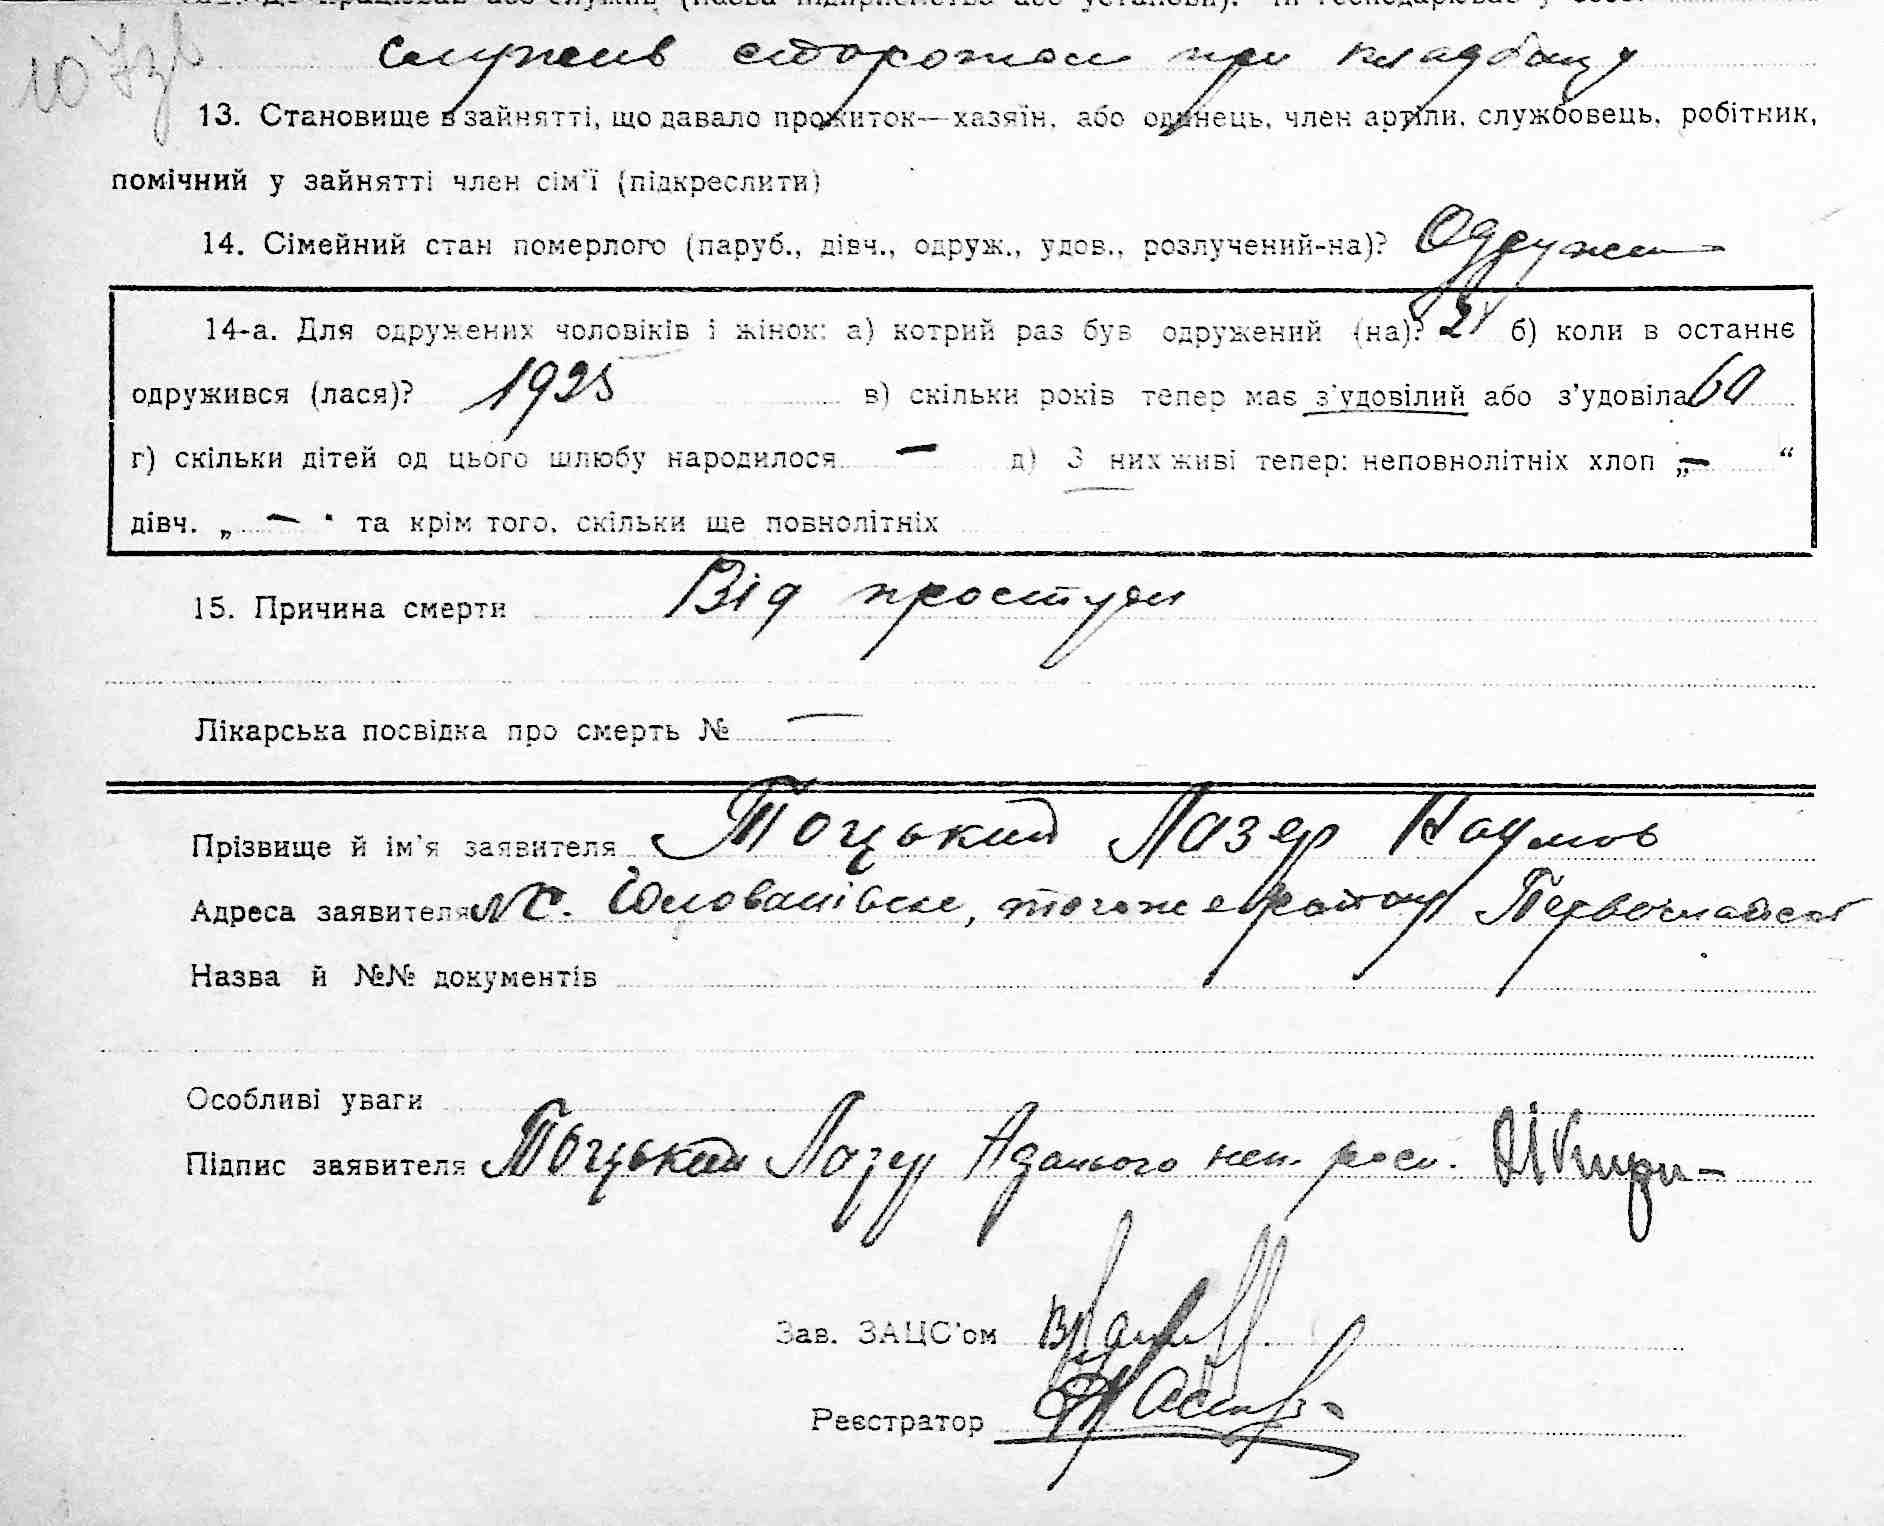 12а. Де працював або служив (назва підприємства або установи). Чи господарював у
Служив сторожом при кладбищу
13. Становище в зайнятті, що давало прожиток—хазяїн, або одинець, член артіли, службовець, робітник,
помічний у зайнятті член сім'ї (підкреслити)
14. Сімейний стан померлого (паруб., дівч., одруж., удов., розлучений-на)? Одружен
14-а. Для одружених чоловіків і жінок: а) котрий раз був одружений (на)? 2й б) коли в останнє
одружився (лася)? 1925 в) скільки років тепер має з'удовілий або з'удовіла 60
г) скільки дітей од цього шлюбу народилося — д) З них живі тепер: неповнолітніх хлоп „— “
дівч. „ — “ та крім того, скільки ще повнолітніх
15. Причина смерти Від простуди
Лікарська посвідка про смерть № —
Прізвище й ім'я заявителя Тоцький Лазер Наумов
Адреса заявителя М. Голованівське, тогоже району Первомайськ
Назва й №№ документів
Особливі уваги
Підпис заявителя Тоцький Лазер
Зав. ЗАЦС'ом
Реєстратор